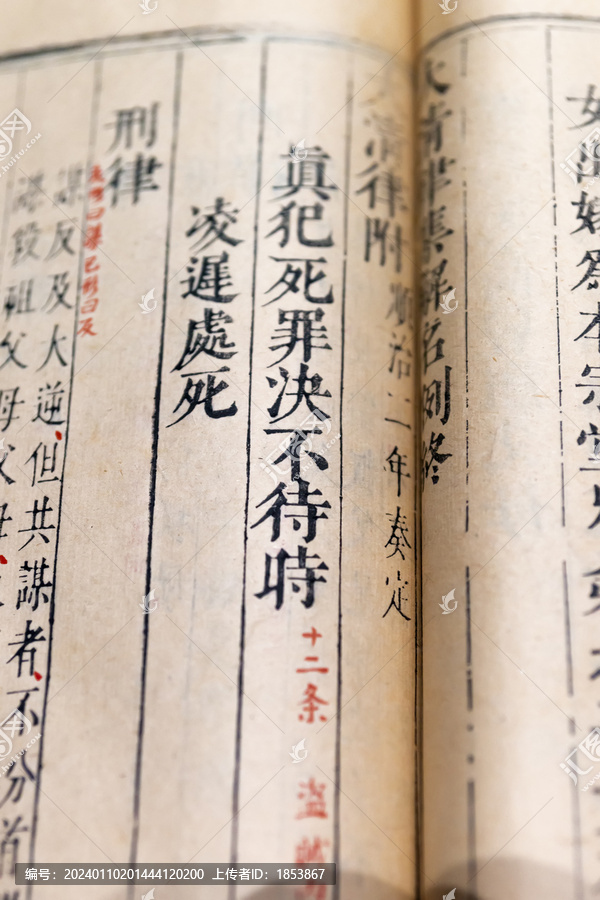 女出嫁為本宗堂
大清律集解名例終
大清律附 順治二年奏定
眞犯死罪決不待時 十二条 盗
凌遲處死
刑律
謀反及大逆但共謀者不分首
謀殺祖父母父母
编号：20240110201444120200 上传者ID：1853867